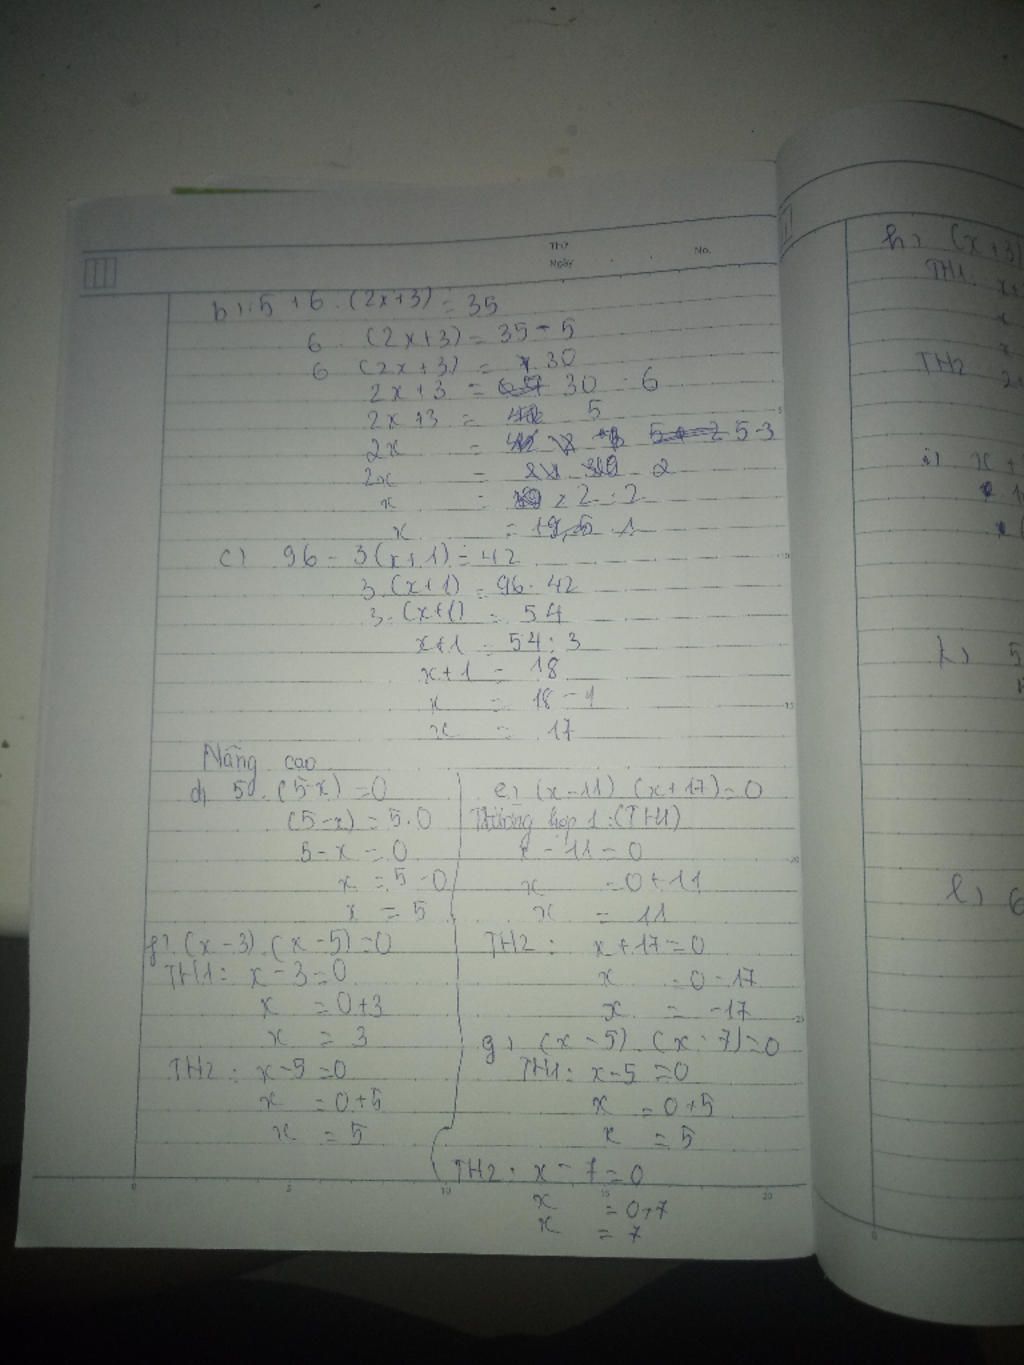 Thứ
Ngày
No.
b) 5 + 6 . (2x+3) = 35
6 (2x+3) = 35 - 5
6 (2x+3) = 30
2x+3 = 30 : 6
2x+3 = 5
2x = 5-3
2x = 2
x = 2 : 2
x = 1
c) 96 - 3(x+1) = 42
3.(x+1) = 96 - 42
3.(x+1) = 54
x+1 = 54 : 3
x+1 = 18
x = 18 - 1
x = 17
Nâng cao
d) 5 . (5-x) = 0
(5-x) = 5.0
5-x = 0
x = 5-0
x = 5
f) (x-3) . (x-5) = 0
TH1: x-3=0
x = 0+3
x = 3
TH2: x-5=0
x = 0+5
x = 5
e) (x-11) (x+17) = 0
Trường hợp 1: (TH1)
x - 11 = 0
x = 0+11
x = 11
TH2: x+17=0
x = 0-17
x = -17
g) (x-5) . (x-7)=0
TH1: x-5=0
x = 0+5
x = 5
TH2: x-7=0
x = 0+7
x = 7
0 5 10 15 20
h) (x+3)
TH1: x+
x
x
TH2 2
i) x +
k) 5
l) 6
0